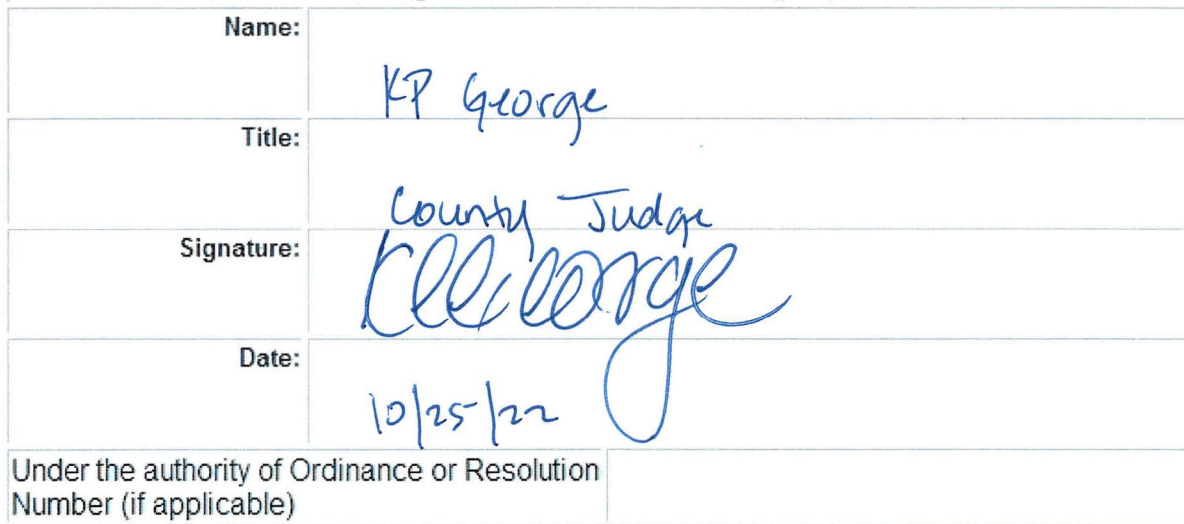 Name:
KP George
Title:
County Judge
Signature:
KPGeorge
Date:
10/25/22
Under the authority of Ordinance or Resolution
Number (if applicable)